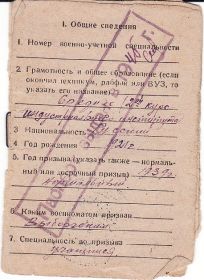 I. Общие сведения
1. Номер военно-учетной специальности
2. Грамотность и общее образование (если
окончил техникум, рабфак или ВУЗ, то
указать его название)
2й курс
индустриальн. института
3. Национальность русский
4. Год рождения 1921 г.
5. Год призыва (указать также — нормаль-
ный или досрочный призыв) 1939 г.
нормальный
6. Каким военкоматом призван
Выборгским
7. Специальность до призыва
учащийся